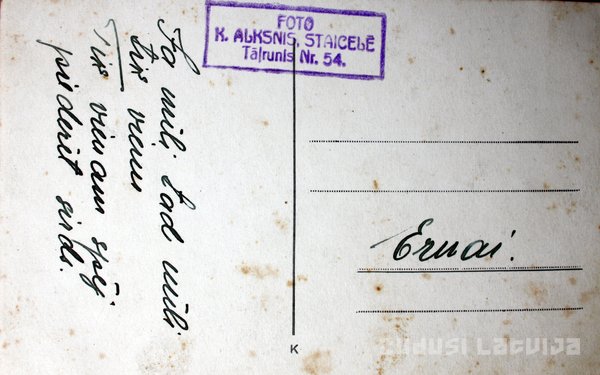 FOTO
K. ALKSNIS, STAICELĒ
Tāļrunis Nr. 54.
Ja mīli, tad mīli
tik vienu
Tik vienam spēj
piederēt sirds.
Ernai.
K
zudusi Latvija